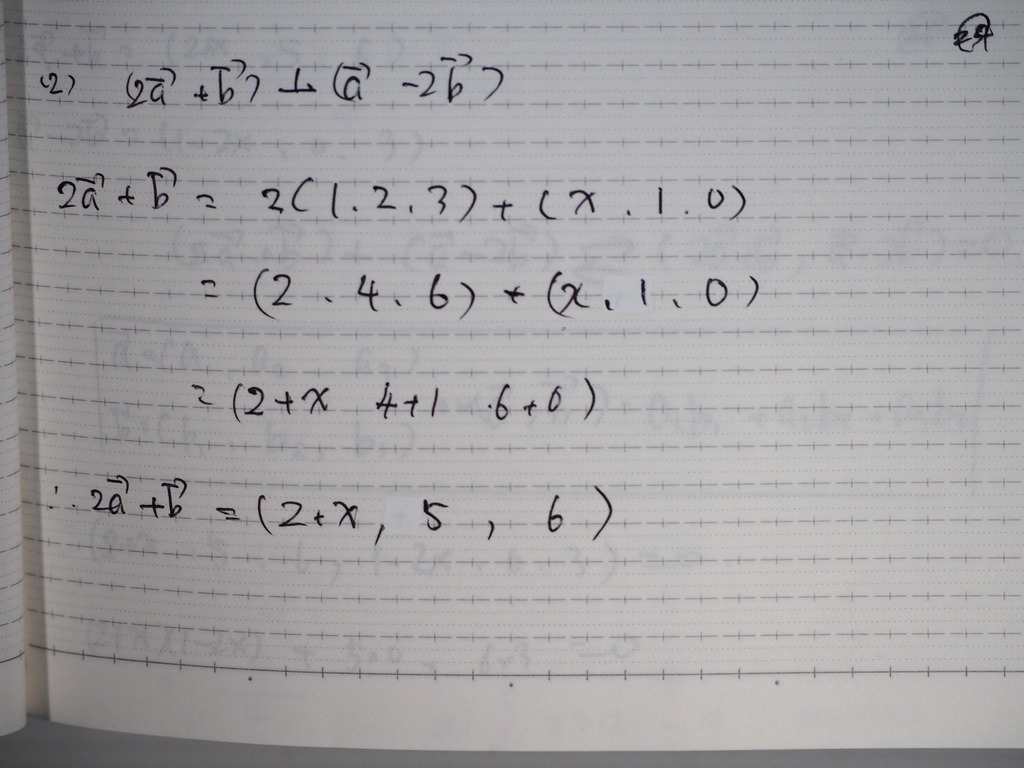 (2) (2a⃗ + b⃗) ⊥ (a⃗ - 2b⃗)
2a⃗ + b⃗ = 2(1. 2. 3) + (x. 1. 0)
= (2. 4. 6) + (x. 1. 0)
= (2+x 4+1 .6+0)
∴ 2a⃗ + b⃗ = (2+x, 5, 6)